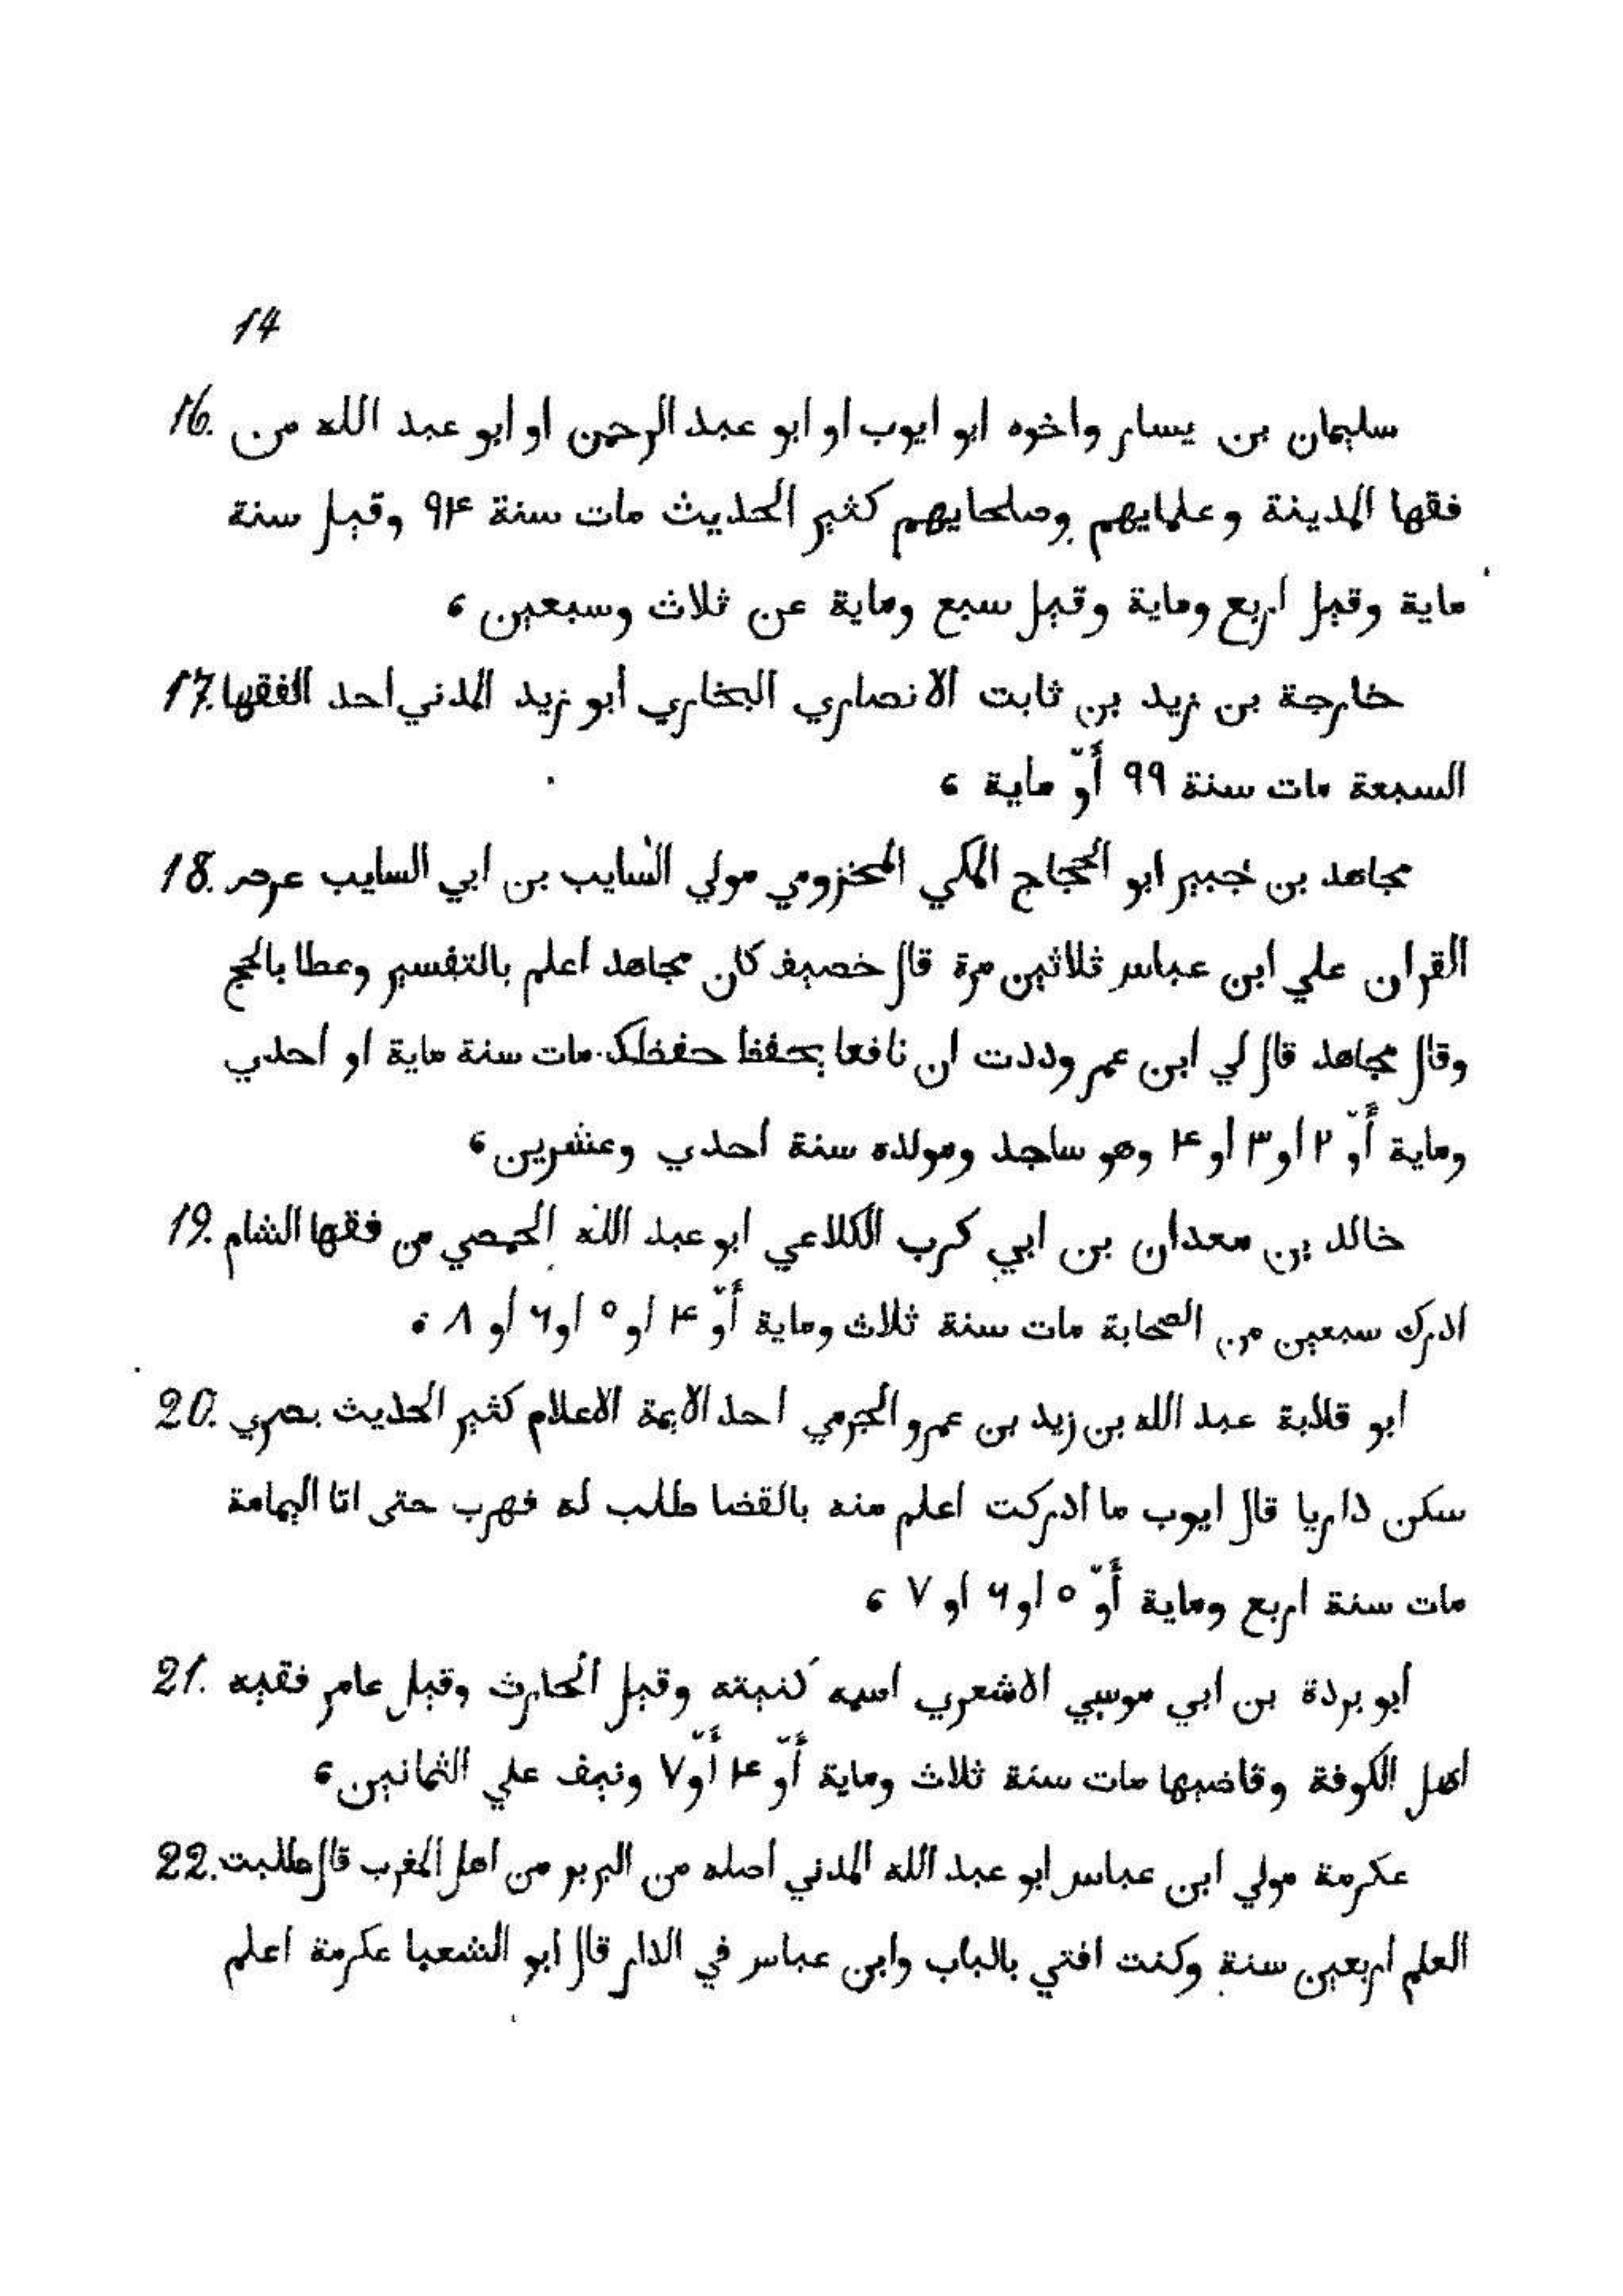 14
16. سليمان بن يسار واخوه ابو ايوب او ابو عبد الرحمن او ابو عبد الله من
فقها المدينة وعلمايهم وصلحايهم كثير الحديث مات سنة ۹۴ وقيل سنة
ماية وقيل اربع وماية وقيل سبع وماية عن ثلاث وسبعين ،
17. خارجة بن زيد بن ثابت الانصاري البخاري ابو زيد المدني احد الفقها
السبعة مات سنة ۹۹ أَوّ ماية ،
18. مجاهد بن جبير ابو الحجاج المكي المخزومي مولي السايب بن ابي السايب عرض
القران علي ابن عباس ثلاثين مرة قال خصيف كان مجاهد اعلم بالتفسير وعطا بالحج
وقال مجاهد قال لي ابن عمر وددت ان نافعا يحفظ حفظك مات سنة ماية او احدي
وماية أَوّ ۲ او ۳ او ۴ وهو ساجد ومولده سنة احدي وعشرين ،
19. خالد بن معدان بن ابي كرب الكلاعي ابو عبد الله الحمصي من فقها الشام
ادرك سبعين من الصحابة مات سنة ثلاث وماية أَوّ ۴ او ٥ او ٦ او ۸ ،
20. ابو قلابة عبد الله بن زيد بن عمرو الجرمي احد الايمة الاعلام كثير الحديث بصري
سكن داريا قال ايوب ما ادركت اعلم منه بالقضا طلب له فهرب حتى اتا اليمامة
مات سنة اربع وماية أَوّ ٥ او ٦ او ۷ ،
21. ابو بردة بن ابي موسي الاشعري اسمه كنيته وقيل الحارث وقيل عامر فقيه
اهل الكوفة وقاضيها مات سنة ثلاث وماية أَوّ ۴ أَوّ ۷ ونيف علي الثمانين ،
22. عكرمة مولي ابن عباس ابو عبد الله المدني اصله من البربر من اهل المغرب قال طلبت
العلم اربعين سنة وكنت افتي بالباب وابن عباس في الدار قال ابو الشعبا عكرمة اعلم